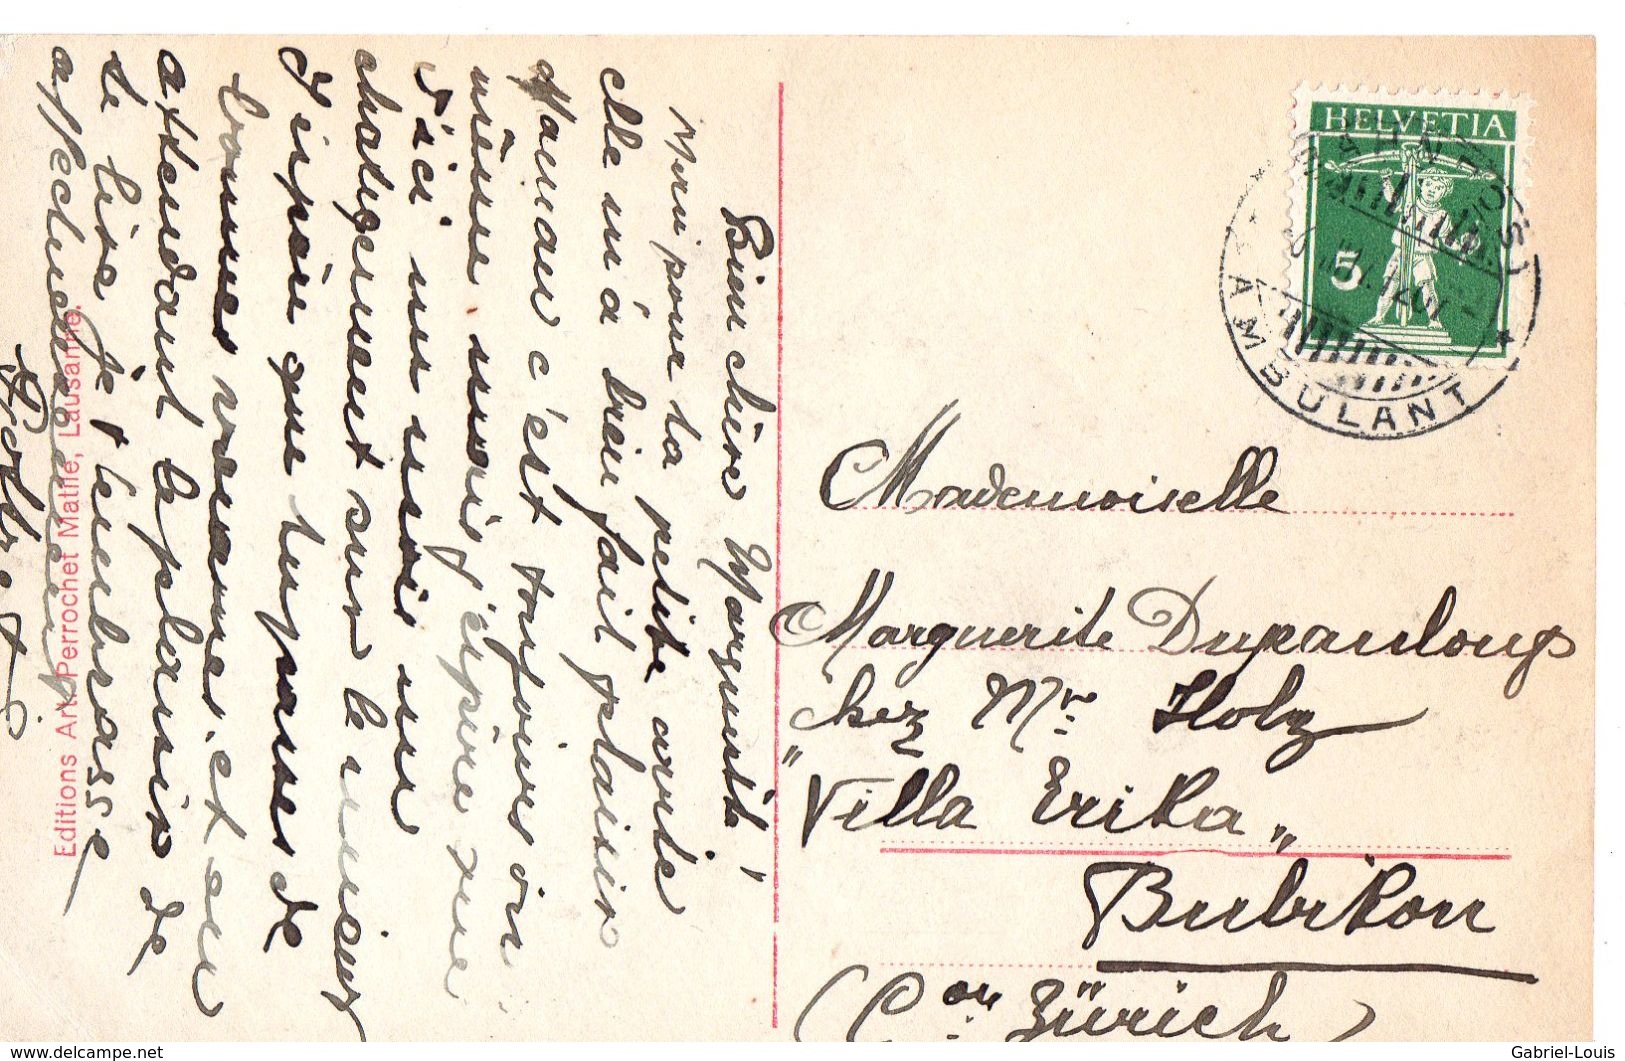 Bien chère Marguerite
Merci pour ta petite carte
elle m'a bien fait plaisir
Maman c'est toujours
même mais j'espère que
d'ici un mois un
changement sur le mieux
J'espère que tu passes de
bonnes vacances, et au
attendant le plaisir de
te lire je t'embrasse
affectueusement
Editions Art. Perrochet Matile, Lausanne.
HELVETIA
5
AMBULANT
Mademoiselle
Marguerite Dupanloup
chez Mr Holz
"Villa Erika"
Bubikon
(Con Zürich)
www.delcampe.net
Gabriel-Louis